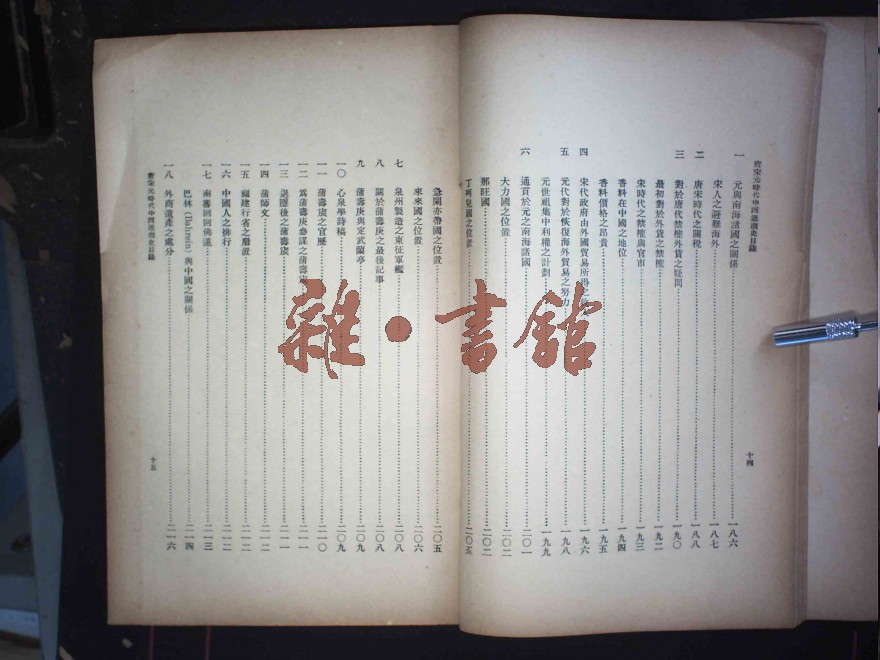 唐宋元時代中西通商史目錄
一 元與南海諸國之關係 一八六
宋人之避難海外 一八七
二 唐宋時代之關稅 一八八
三 對於唐代禁榷外貨之疑問 一九〇
最初對於外貨之禁榷 一九二
宋時代之禁榷與官市 一九三
香料在中國之地位 一九四
香料價格之昂貴 一九五
四 宋代政府由外國貿易所得之 一九六
五 元代對於恢復海外貿易之努力 一九八
元世祖集中利權之計劃 一九九
六 通貢於元之南海諸國 二〇一
大力國之位置 二〇二
那旺國 二〇二
丁呵兒國之位置 二〇
十四
急闌亦帶國之位置 二〇五
來來國之位置 二〇六
七 泉州製造之東征軍艦 二〇八
八 關於蒲壽庚之最後記事 二〇八
九 蒲壽庚與定武蘭亭 二〇九
一〇 心泉學詩稿 二〇九
一一 蒲壽宬之官歷 二一〇
一二 為蒲壽庚參謀之蒲壽宬 二一一
一三 退隱後之蒲壽宬 二一一
一四 蒲師文 二一二
一五 福建行省之廢置 二一二
一六 中國人之排行 二一二
一七 南蕃回回佛蓮 二一三
巴林 (Bahrein) 與中國之關係 二一四
一八 外商遺產之處分 二一六
唐宋元時代中西通商史目錄
十五
雜·書館